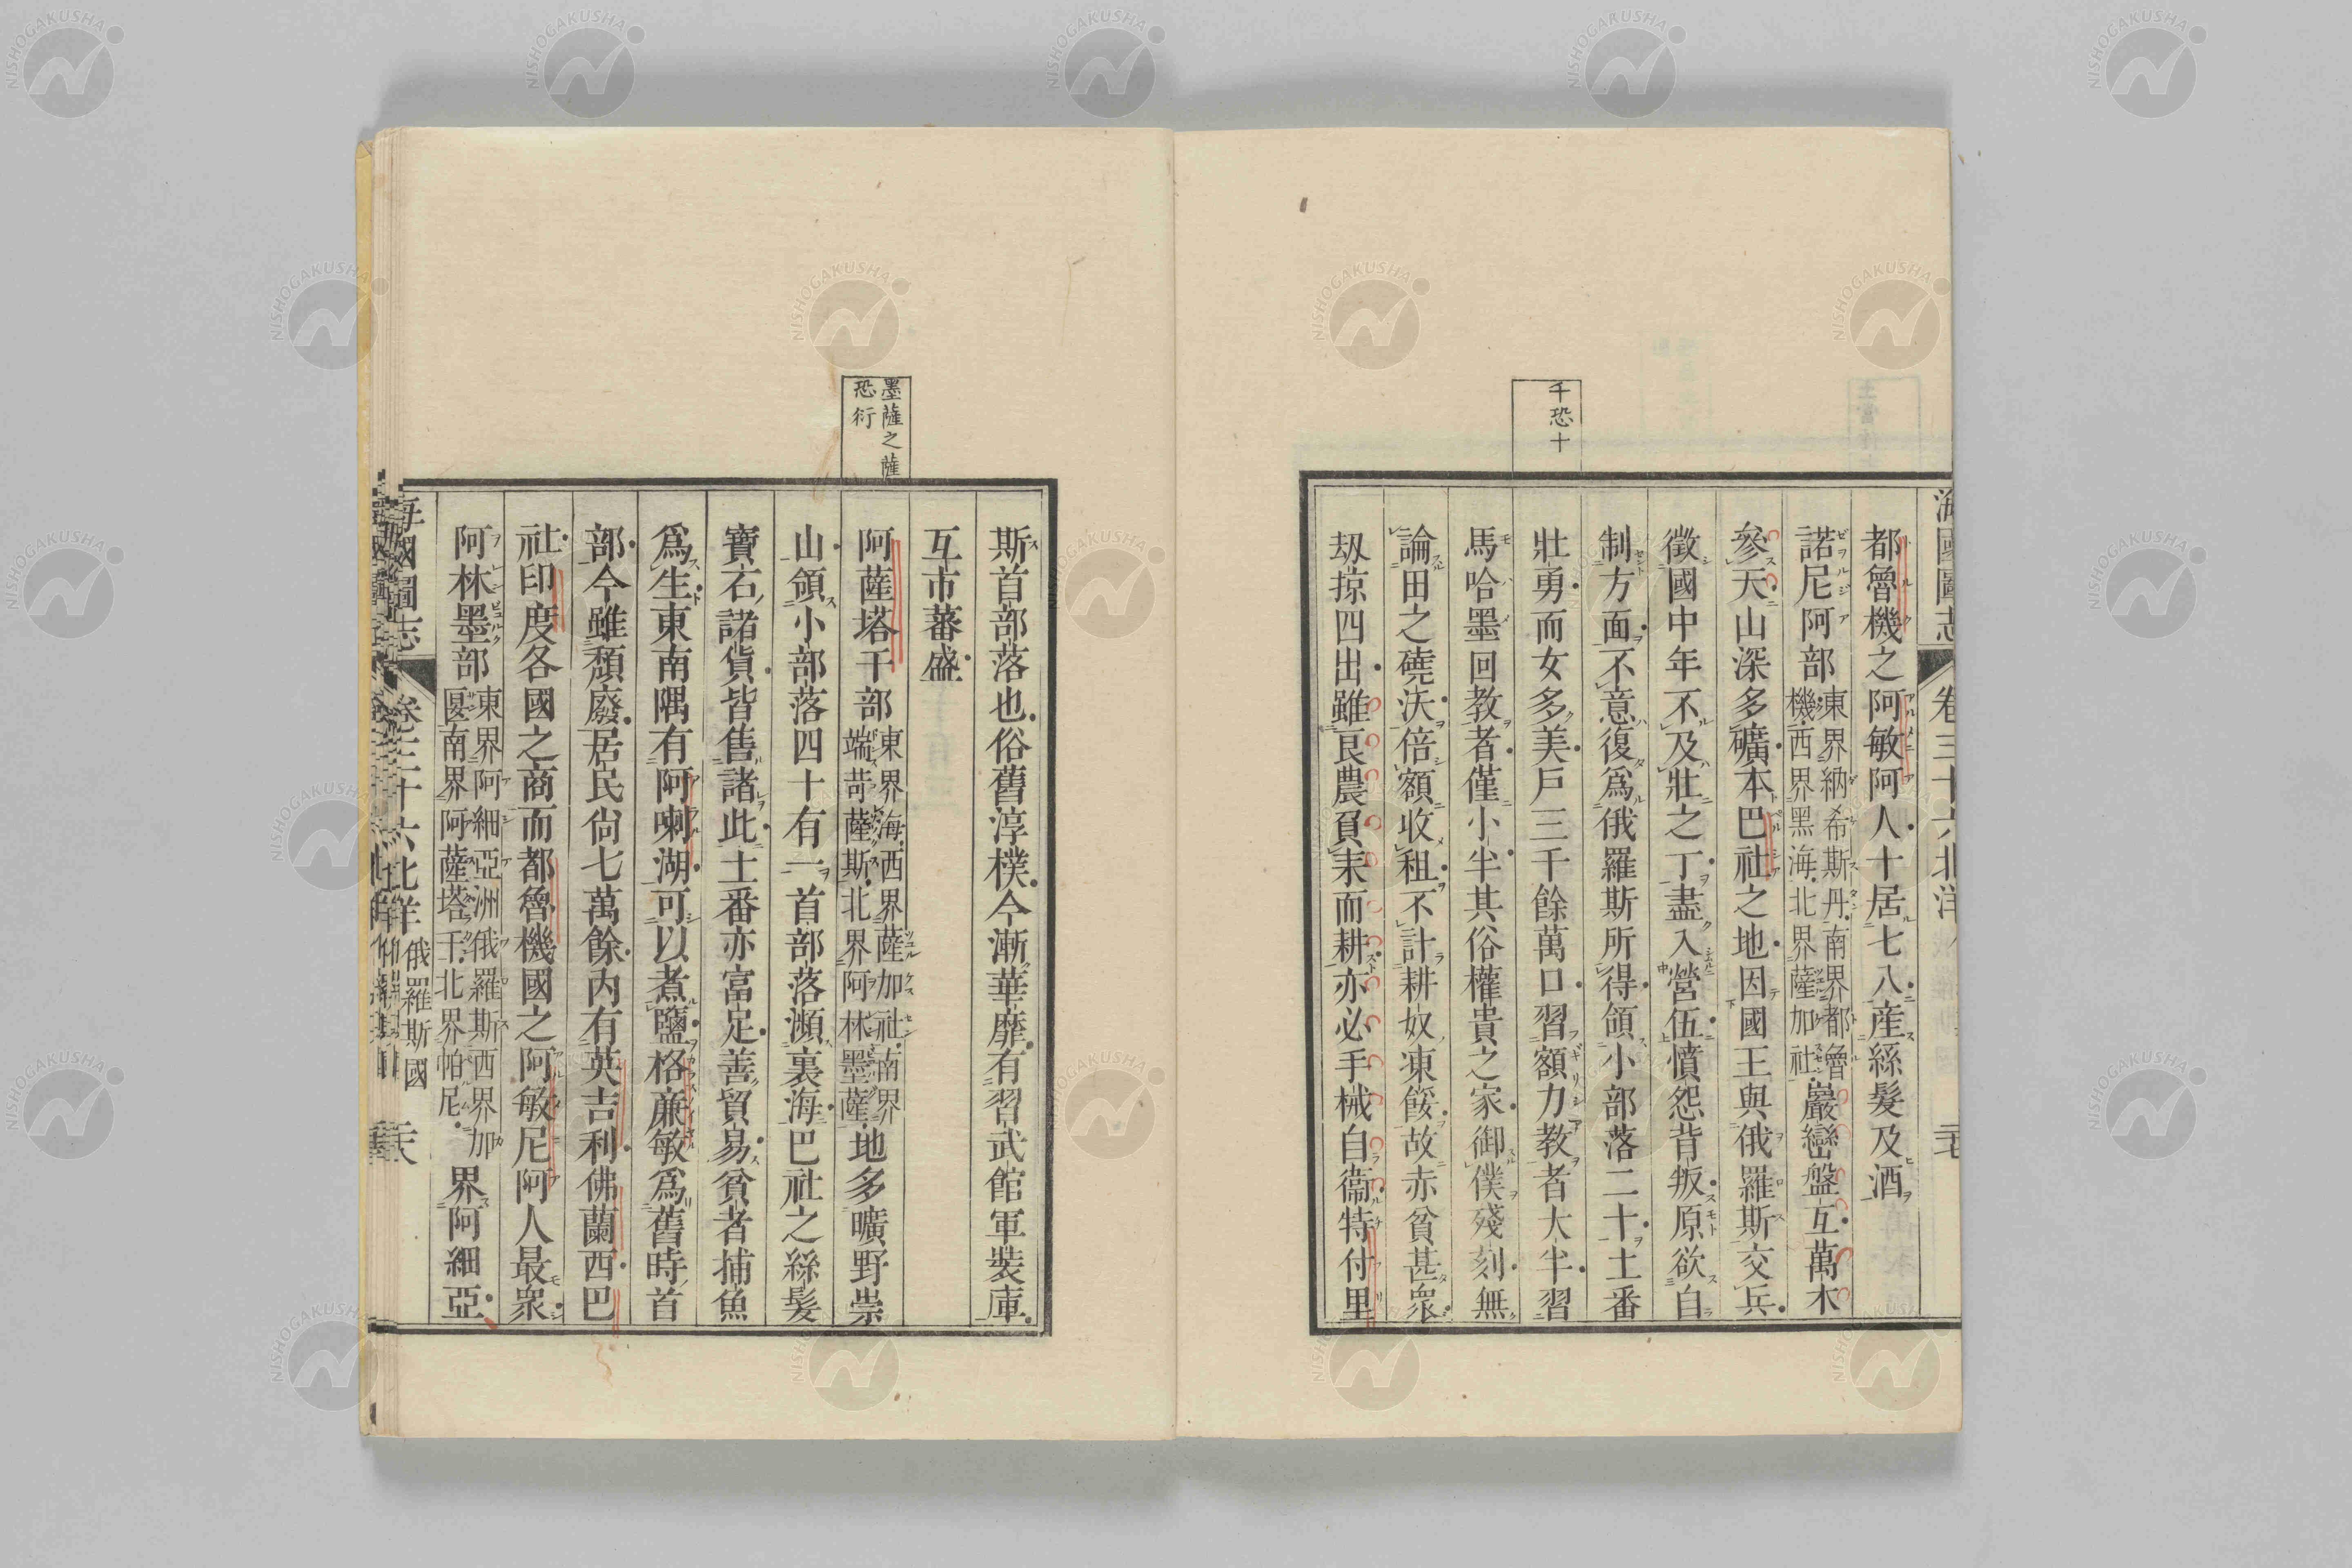 海國圖志 卷三十六 北洋
都魯機之阿敏阿人十居七八產絲髮及酒
諾尼阿部東界納希斯丹南界都魯機西界黑海北界薩加社巖巒盤互萬木
參天山深多礦本巴社之地因國王與俄羅斯交兵
徵國中年不及壯之丁盡入營伍憤怨背叛原欲自
制方面不意復爲俄羅斯所得領小部落二十土番
壯勇而女多美戶三千餘萬口習額力教者大半習
馬哈墨回教者僅小半其俗權貴之家御僕殘刻無
論田之磽沃倍額收租不計耕奴凍餒故赤貧甚衆
刼掠四出雖良農負耒而耕亦必手械自衞特付里
千恐十
斯首部落也俗舊淳樸今漸華靡有習武館軍裝庫
互市蕃盛
阿薩塔干部東界海西界薩加社南界端苛薩斯北界阿林墨薩地多曠野崇
山領小部落四十有一首部落瀕裏海巴社之絲髮
寶石諸貨皆售諸此土番亦富足善貿易貧者捕魚
爲生東南隅有阿喇湖可以煮鹽格廉敏爲舊時首
部今雖頹廢居民尙七萬餘內有英吉利佛蘭西巴
社印度各國之商而都魯機國之阿敏尼阿人最衆
阿林墨部東界阿細亞洲俄羅斯西界加匽南界阿薩塔干北界帕尼界阿細亞
墨薩之薩恐衍
海國圖志 卷三十六 北洋 俄羅斯國